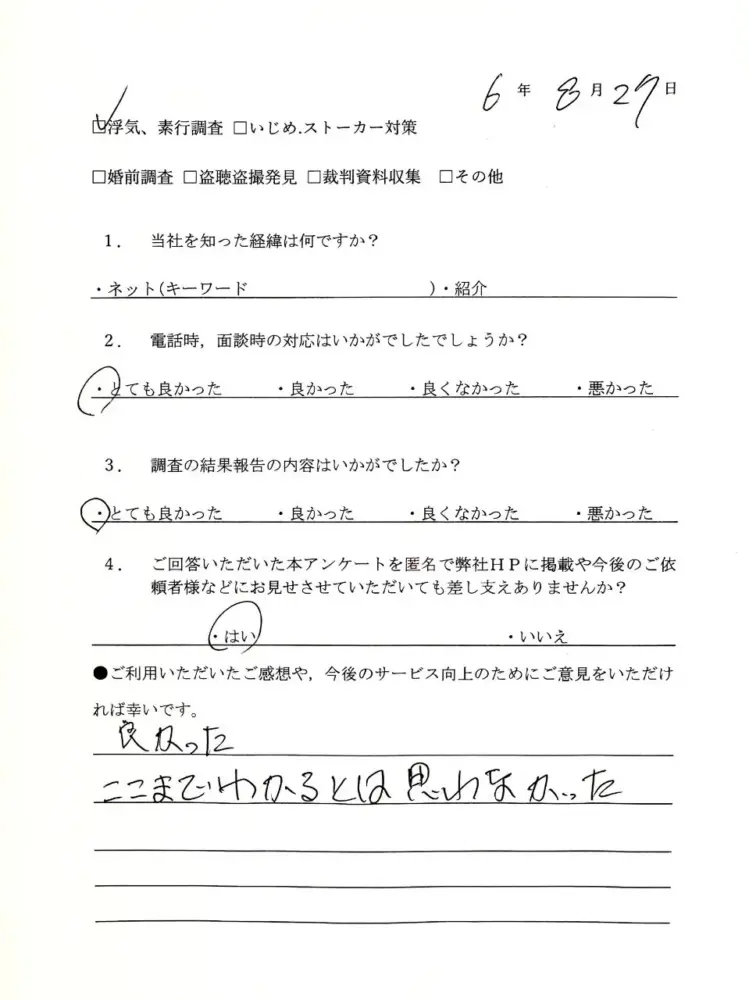 6年 8月27日
☑浮気、素行調査 □いじめ.ストーカー対策
□婚前調査 □盗聴盗撮発見 □裁判資料収集 □その他
1． 当社を知った経緯は何ですか？
・ネット(キーワード )・紹介
2． 電話時，面談時の対応はいかがでしたでしょうか？
・とても良かった ・良かった ・良くなかった ・悪かった
3． 調査の結果報告の内容はいかがでしたか？
・とても良かった ・良かった ・良くなかった ・悪かった
4． ご回答いただいた本アンケートを匿名で弊社ＨＰに掲載や今後のご依
頼者様などにお見せさせていただいても差し支えありませんか？
・はい ・いいえ
●ご利用いただいたご感想や，今後のサービス向上のためにご意見をいただけ
れば幸いです。
良かった
ここまでわかるとは思わなかった